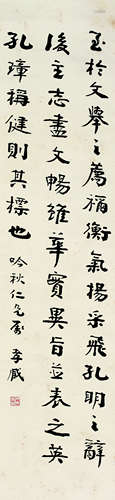 至於文舉之薦禰衡氣揚采飛孔明之辭
後主志盡文暢雖華實異旨並表之英
孔璋稱健則其標也 吟秋仁兄屬